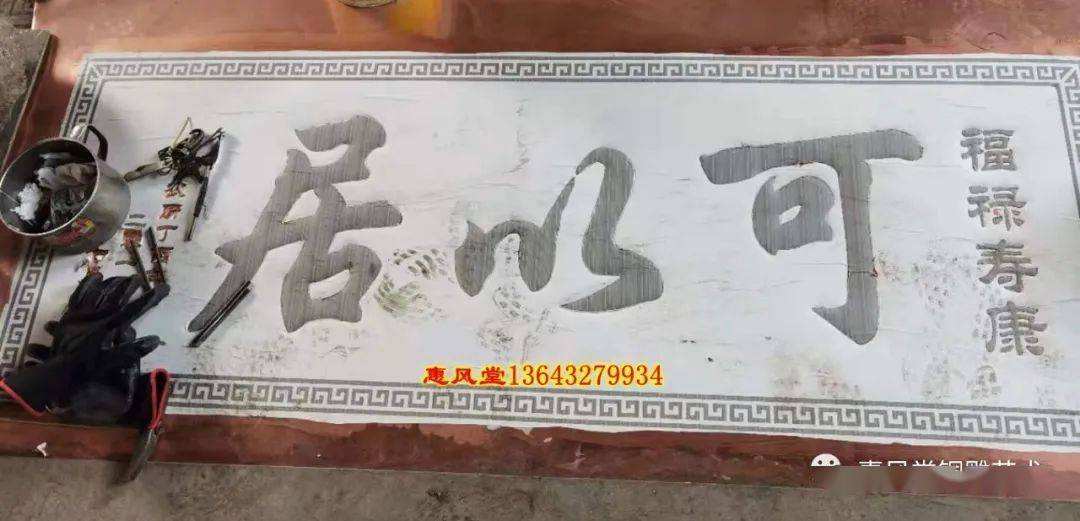 福禄寿康
可以居
惠风堂13643279934